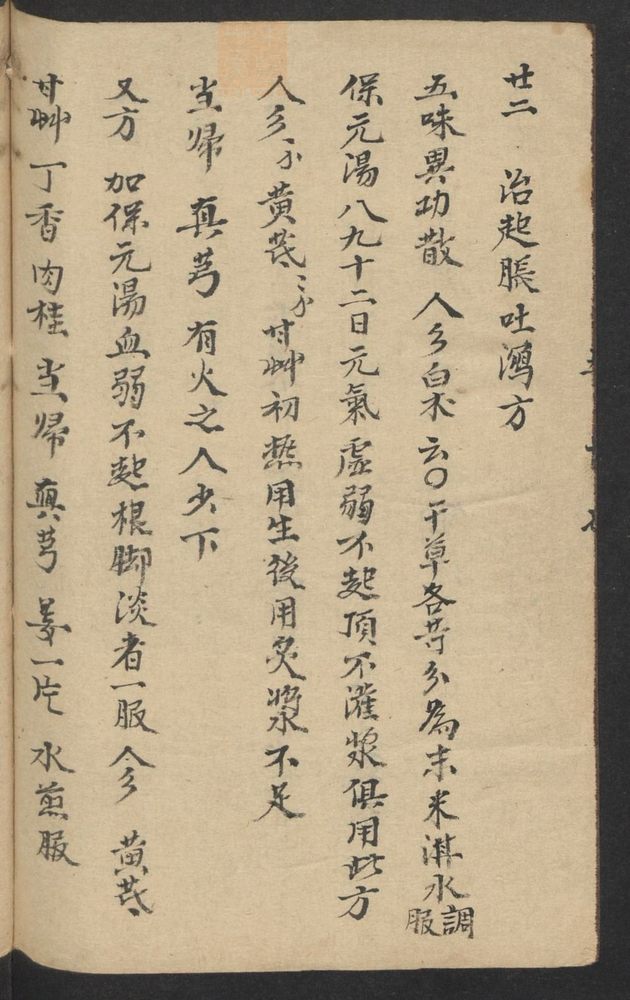 廿二 治起脹吐瀉方
五味異功散 人彡白术云〇干草各等分為末米淋水調服
保元湯八九十二日元氣虛弱不起頂不灌漿俱用此方
人彡 黄芪 甘艸初热用生後用炙漿不足
当帰 真芎 有火之人少下
又方 加保元湯血弱不起根脚淡者一服 人彡 黄芪
甘艸 丁香 肉桂 当帰 真芎 姜一片 水煎服